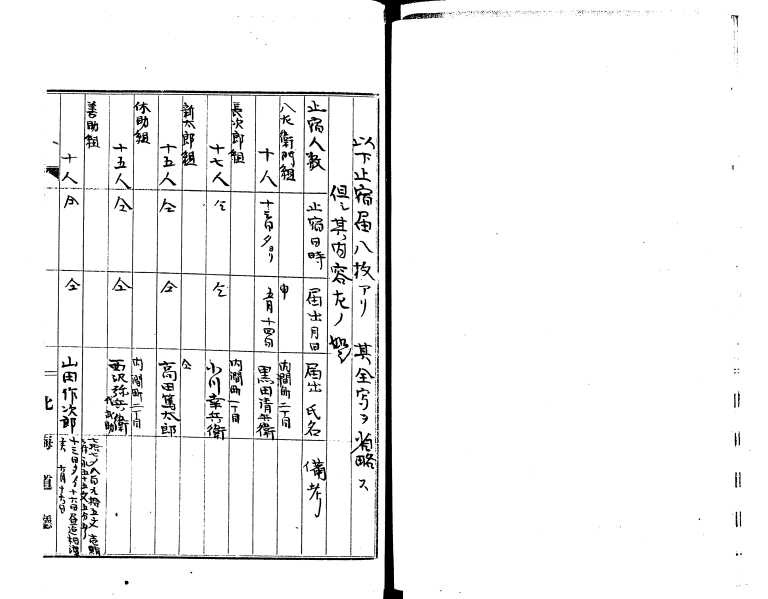 以下止宿届八枚アリ 其全写ヲ省略ス
但シ其内容左ノ如シ
止宿人数 止宿日時 届出月日 届出氏名 備考
八左衛門組 申 内澗町二丁目
十人 十三日夕ヨリ 五月十四日 黒田清兵衛
長次郎組 内澗町一丁目
十七人 仝 仝 小川幸兵衛
新太郎組 仝
十五人 仝 仝 高田篤太郎
休助組 内澗町二丁目
十五人 仝 仝 西沢弥兵衛
善助組
十人 仝 仝 山田作次郎
北海道廳